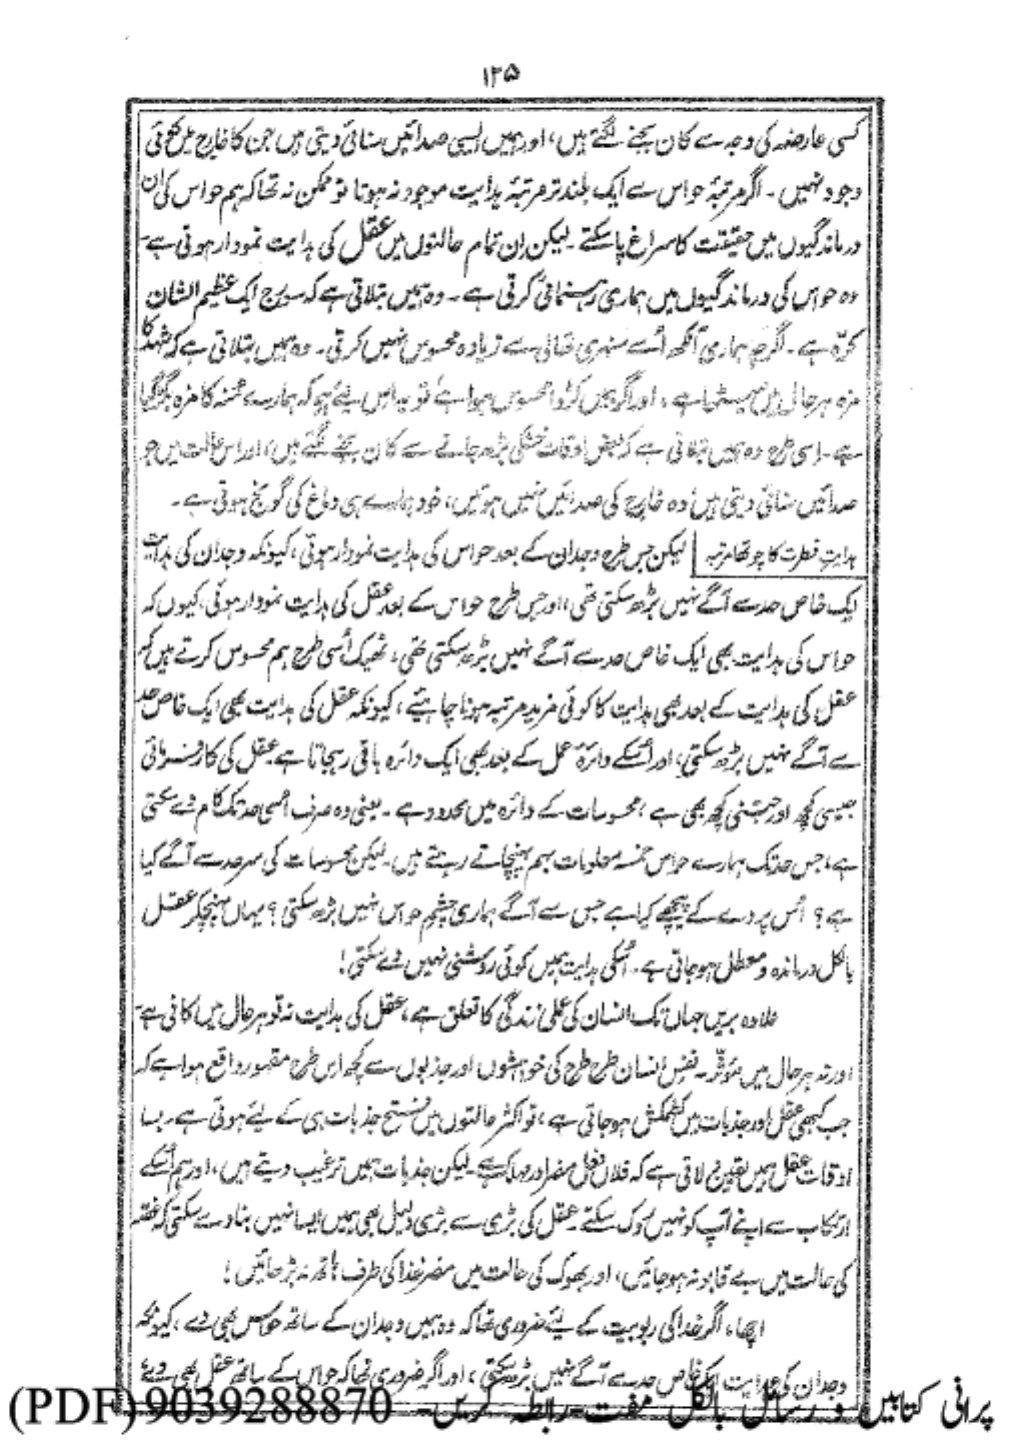 ۱۲۵
کسی عارضہ کی وجہ سے کان بجنے لگتے ہیں، اور ہمیں ایسی صدائیں سنائی دیتی ہیں جن کا خارج میں کوئی
وجود نہیں۔ اگر مرتبۂ حواس سے ایک بلند تر مرتبۂ ہدایت موجود نہ ہوتا تو ممکن نہ تھا کہ ہم حواس کی ان
درماندگیوں میں حقیقت کا سراغ پا سکتے۔ لیکن ان تمام حالتوں میں عقل کی ہدایت نمودار ہوتی ہے۔
وہ حواس کی درماندگیوں میں ہماری رہنمائی کرتی ہے۔ وہ ہمیں بتلاتی ہے کہ سورج ایک عظیم الشان
کرّہ ہے۔ اگرچہ ہماری آنکھ اُسے سنہری تھالی سے زیادہ محسوس نہیں کرتی۔ وہ ہمیں بتلاتی ہے کہ شہد کا
مزہ ہر حال میں میٹھا ہے، اور اگر ہمیں کڑوا محسوس ہوا ہے تو یہ اس لیے ہے کہ ہمارے منہ کا مزہ بگڑ گیا
ہے۔ اسی طرح وہ ہمیں بتلاتی ہے کہ بعض اوقات خشکی بڑھ جانے سے کان بجنے لگتے ہیں، اور اس حالت میں جو
صدائیں سنائی دیتی ہیں، وہ خارج کی صدائیں نہیں ہوتیں، خود ہمارے ہی دماغ کی گونج ہوتی ہے۔
ہدایتِ فطرت کا چوتھا مرتبہ لیکن جس طرح وجدان کے بعد حواس کی ہدایت نمودار ہوتی، کیونکہ وجدان کی ہدایت
ایک خاص حد سے آگے نہیں بڑھ سکتی تھی، اور جس طرح حواس کے بعد عقل کی ہدایت نمودار ہوئی، کیوں کہ
حواس کی ہدایت بھی ایک خاص حد سے آگے نہیں بڑھ سکتی تھی، ٹھیک اُسی طرح ہم محسوس کرتے ہیں کہ
عقل کی ہدایت کے بعد بھی ہدایت کا کوئی مزید مرتبہ ہونا چاہیئے، کیونکہ عقل کی ہدایت بھی ایک خاص حد
سے آگے نہیں بڑھ سکتی، اور اُسکے دائرۂ عمل کے بعد بھی ایک دائرہ باقی رہجاتا ہے۔ عقل کی کارفرمائی
جیسی کچھ اور جتنی کچھ بھی ہے، محسوسات کے دائرہ میں محدود ہے۔ یعنی وہ صرف اُسی حد تک کام دے سکتی
ہے، جس حد تک ہمارے حواس خمسہ معلومات بہم پہنچاتے رہتے ہیں۔ لیکن محسوسات کی سرحد سے آگے کیا
ہے؟ اُس پردے کے پیچھے کیا ہے جس سے آگے ہماری چشم حواس نہیں بڑھ سکتی؟ یہاں پہنچکر عقل
بالکل درماندہ و معطل ہو جاتی ہے۔ اُسکی ہدایت ہمیں کوئی روشنی نہیں دے سکتی!
علاوہ بریں جہاں تک انسان کی عملی زندگی کا تعلق ہے، عقل کی ہدایت نہ تو ہر حال میں کافی ہے۔
اور نہ ہر حال میں مؤثر۔ نفس انسان طرح طرح کی خواہشوں اور جذبوں سے کچھ اس طرح مقہور واقع ہوا ہے کہ
جب کبھی عقل اور جذبات میں کشمکش ہو جاتی ہے، تو اکثر حالتوں میں فتح جذبات ہی کے لیے ہوتی ہے۔ بسا
اوقات عقل ہمیں یقین دلاتی ہے کہ فلاں فعل مضر اور مہلک ہے۔ لیکن جذبات ہمیں ترغیب دیتے ہیں، اور ہم اُسکے
ارتکاب سے اپنے آپ کو نہیں روک سکتے۔ عقل کی بڑی سے بڑی دلیل بھی ہمیں ایسا نہیں بنا دے سکتی کہ غصّہ
کی حالت میں بے قابو نہ ہو جائیں، اور بھوک کی حالت میں مضر غذا کی طرف ہاتھ نہ بڑھائیں!
اچھا، اگر خدا کی ربوبیت کے لیے ضروری تھا کہ وہ ہمیں وجدان کے ساتھ حواس بھی دے، کیونکہ
وجدان کی ہدایت ایک خاص حد سے آگے نہیں بڑھ سکتی، اور اگر ضروری تھا کہ حواس کے ساتھ عقل بھی دے
پرانی کتابیں و رسائل بالکل مفت۔ رابطہ کریں۔ 9039288870 (PDF)